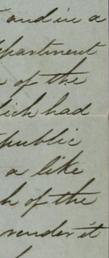 and in a
partment
of the
lich had
public
a like
h of the
render it